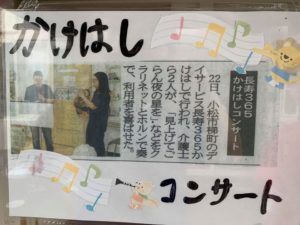 かけはし
長寿365
かけはしコンサート
22日、小松市梯町のデ
イサービス長寿365か
けはしで行われ、介護士
ら2人が、「見上げてご
らん夜の星を」などをク
ラリネットとホルンで奏
で、利用者を喜ばせた。
コンサート